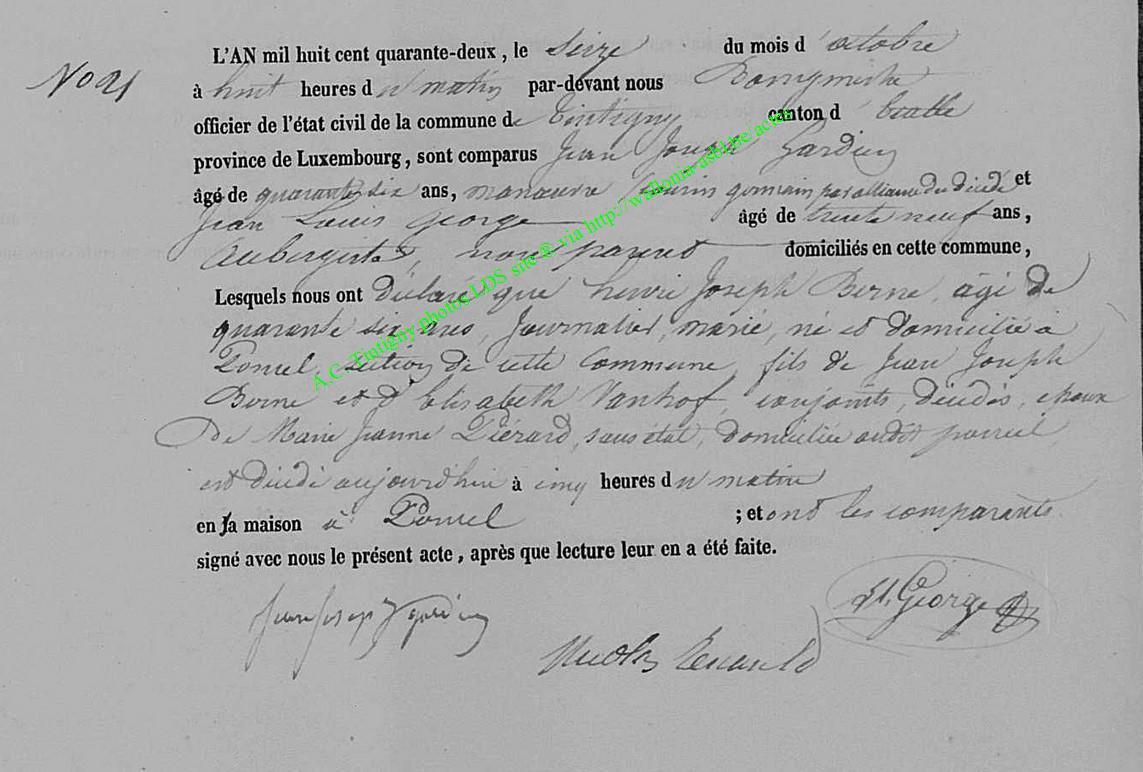 L'AN mil huit cent quarante-deux, le Seize du mois d'octobre
No 21
à huit heures du matin par-devant nous Bourgmestre
officier de l'état civil de la commune de Tintigny canton d'Etalle
province de Luxembourg, sont comparus Jean Joseph Gardien
âgé de quarante six ans, manœuvre cousin germain par alliance du décédé et
Jean Louis George âgé de trente neuf ans,
Aubergiste, non parent domiciliés en cette commune,
Lesquels nous ont Déclaré que henri Joseph Berne, âgé de
quarante six ans, Journalier, marié, né et domicilié à
section de cette Commune, fils de Jean Joseph
Berne et d'Elisabeth Vanhof, conjoints, décédés, époux
De Marie Jeanne Piérard, sans état, domiciliée audit
est décédé aujourd'hui à cinq heures du matin
en sa maison à ; et ont les comparants
signé avec nous le présent acte, après que lecture leur en a été faite.
Jean Joseph Gardien
George
Nicolas
A.C. Tintigny photos LDS site ® via http://wallonia-asbl.be/actes/